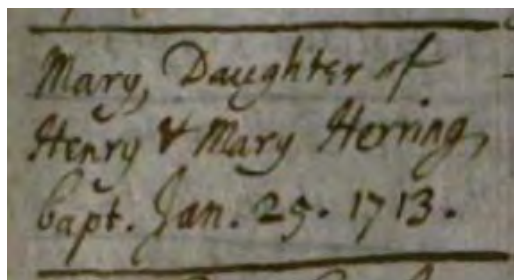 Mary, Daughter of
Henry & Mary Herring,
bapt. Jan. 25. 1713.